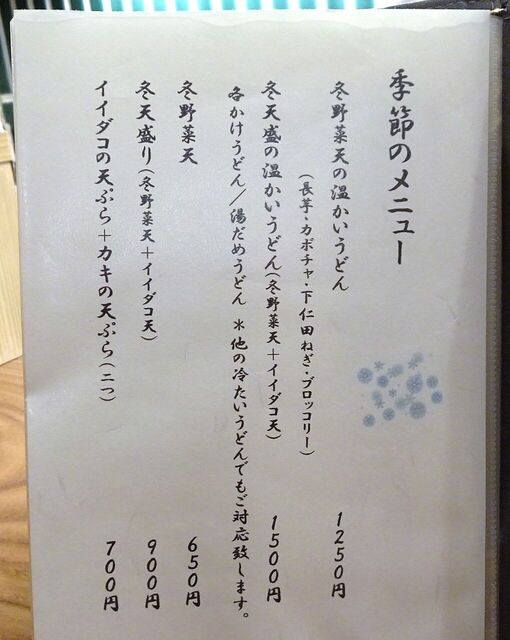 季節のメニュー
冬野菜天の温かいうどん 1250円
(長芋・カボチャ・下仁田ねぎ・ブロッコリー)
冬天盛の温かいうどん(冬野菜天+イイダコ天) 1500円
各かけうどん/湯だめうどん *他の冷たいうどんでもご対応致します。
冬野菜天 650円
冬天盛り(冬野菜天+イイダコ天) 900円
イイダコの天ぷら+カキの天ぷら(二つ) 700円